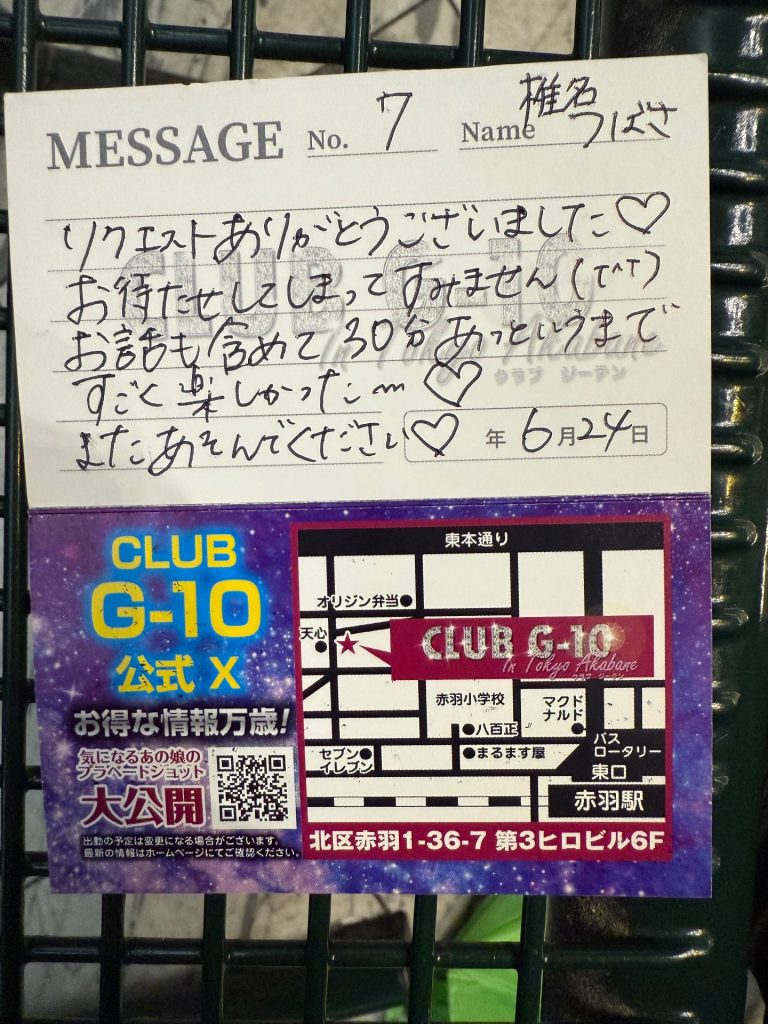 MESSAGE No. 7 Name 椎名つばさ
リクエストありがとうございました♡
お待たせしてしまってすみません(T^T)
お話も含めて30分あっというまで
すごく楽しかった〜♡
またあそんでください♡
年6月24日
CLUB G-10
In Tokyo Akabane
クラブ ジーテン
CLUB
G-10
公式 X
お得な情報万歳!
気になるあの娘の
プラベートショット
大公開
出勤の予定は変更になる場合がございます。
最新の情報はホームページにてご確認ください。
東本通り
オリジン弁当
天心
CLUB G-10
In Tokyo Akabane
クラブ ジーテン
赤羽小学校
マクド
ナルド
八百正
まるます屋
セブン
イレブン
バス
ロータリー
東口
赤羽駅
北区赤羽1-36-7 第3ヒロビル6F